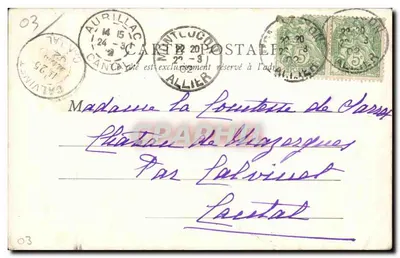 03
AURILLAC
14 15
24 - 3
CANTAL
MONTLUCON
22 20
23 - 3
02
ALLIER
CARTE POSTALE
Ce côté est exclusivement réservé à l'adresse
22 20
ALLIER
Madame La Comtesse de
Château de Mazergues
Par Calvinet
Cantal
03